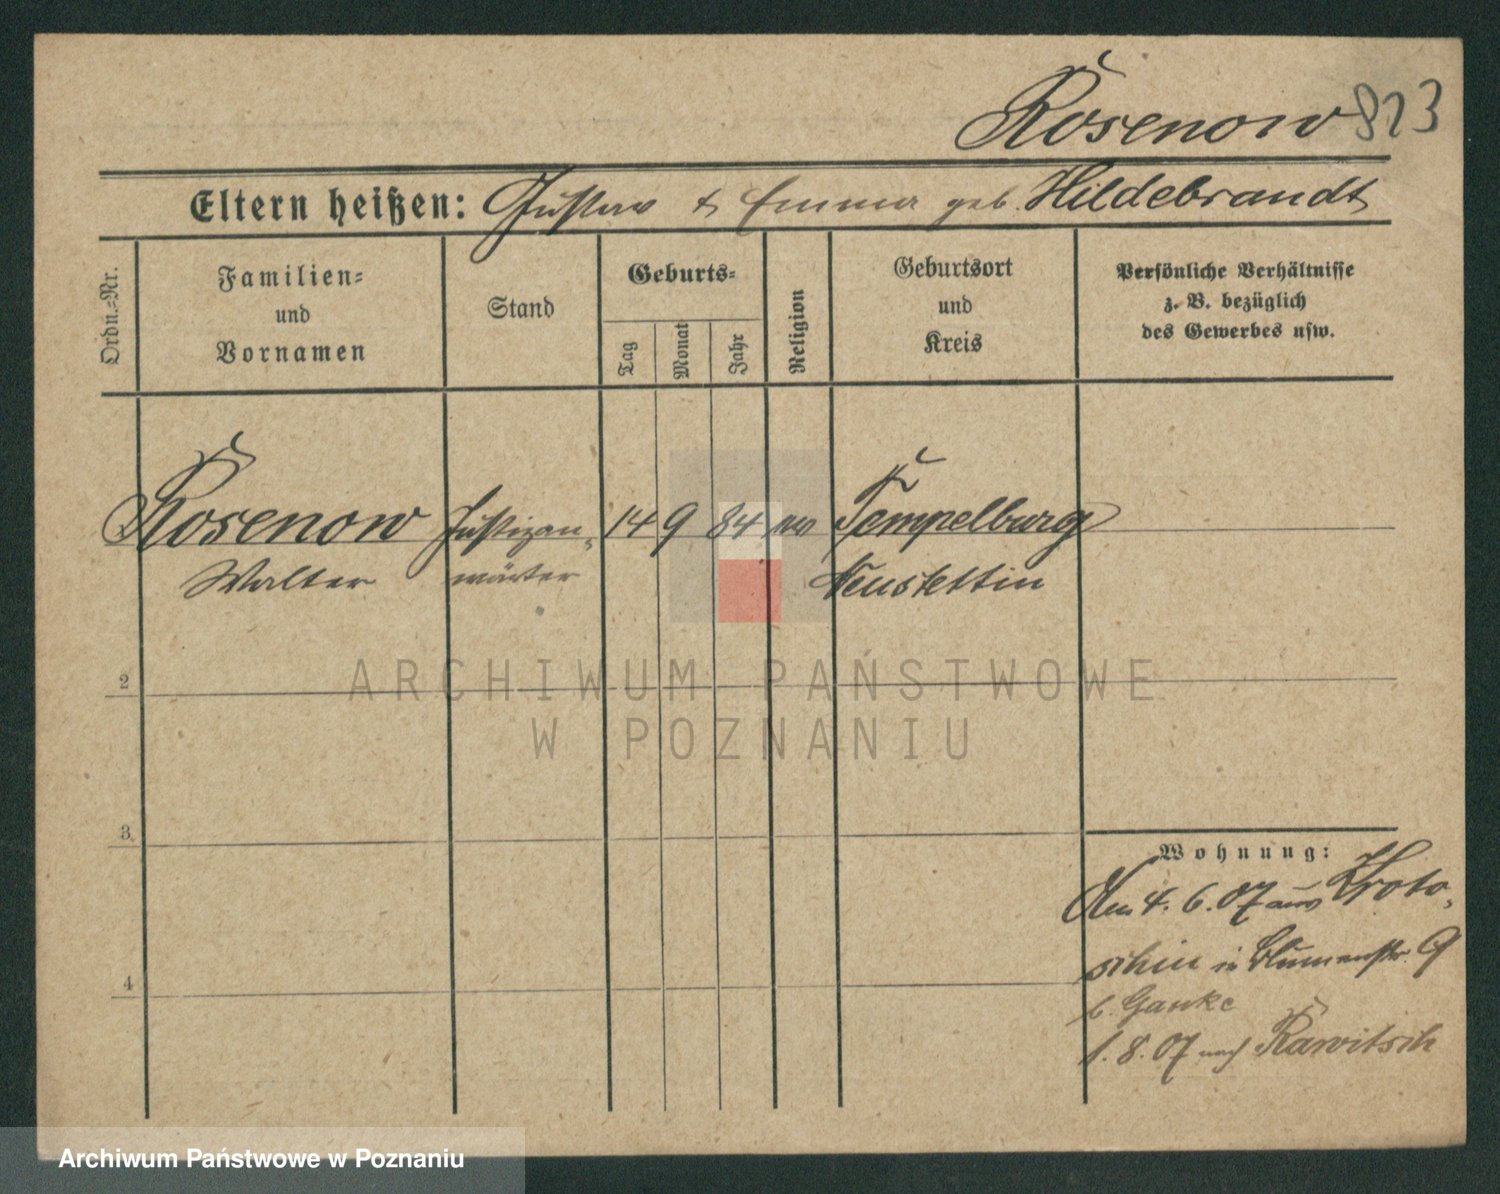 Rosenow 823
Eltern heißen: Gustav & Emma geb. Hildebrandt
Ordn.-Nr.
Familien-
und
Vornamen
Stand
Geburts-
Tag
Monat
Jahr
Religion
Geburtsort
und
Kreis
Persönliche Verhältnisse
z. B. bezüglich
des Gewerbes usw.
Rosenow Justizan- 14 9 84 ev Tempelburg
Walter wärter Neustettin
2
ARCHIWUM PAŃSTWOWE
W POZNANIU
3
Wohnung:
Am 4. 6. 07 aus Kroto-
schin in Blumenstr. 9
b. Ganke
1. 8. 07 nach Rawitsch
4
Archiwum Państwowe w Poznaniu